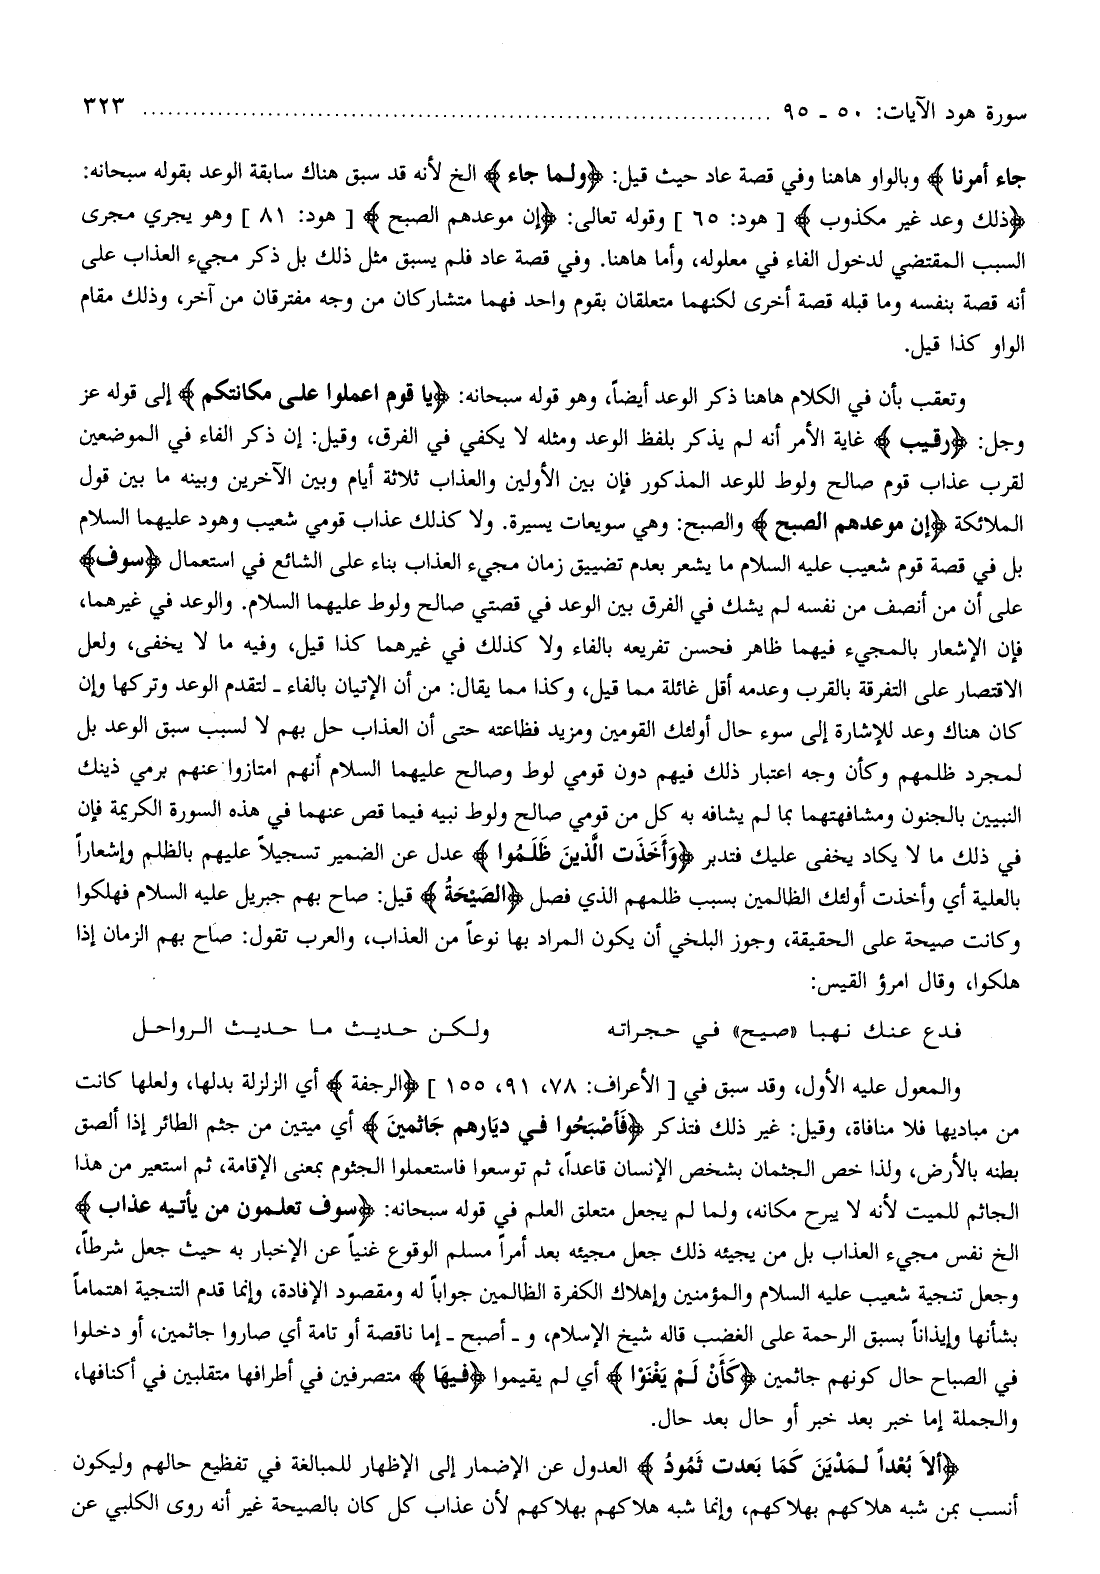 سورة هود الآيات: ٥٠ ـ ٩٥ ........................................................................... ٣٢٣
جاء أمرنا ﴾ وبالواو هاهنا وفي قصة عاد حيث قيل: ﴿ولما جاء ﴾ الخ لأنه قد سبق هناك سابقة الوعد بقوله سبحانه:
﴿ذلك وعد غير مكذوب ﴾ [ هود: ٦٥ ] وقوله تعالى: ﴿إن موعدهم الصبح ﴾ [ هود: ٨١ ] وهو يجري مجرى
السبب المقتضي لدخول الفاء في معلوله، وأما هاهنا. وفي قصة عاد فلم يسبق مثل ذلك بل ذكر مجيء العذاب على
أنه قصة بنفسه وما قبله قصة أخرى لكنهما متعلقان بقوم واحد فهما متشاركان من وجه مفترقان من آخر، وذلك مقام
الواو كذا قيل.
وتعقب بأن في الكلام هاهنا ذكر الوعد أيضاً، وهو قوله سبحانه: ﴿يا قوم اعملوا على مكانتكم ﴾ إلى قوله عز
وجل: ﴿رقيب ﴾ غاية الأمر أنه لم يذكر بلفظ الوعد ومثله لا يكفي في الفرق، وقيل: إن ذكر الفاء في الموضعين
لقرب عذاب قوم صالح ولوط للوعد المذكور فإن بين الأولين والعذاب ثلاثة أيام وبين الآخرين وبينه ما بين قول
الملائكة ﴿إن موعدهم الصبح ﴾ والصبح: وهي سويعات يسيرة. ولا كذلك عذاب قومي شعيب وهود عليهما السلام
بل في قصة قوم شعيب عليه السلام ما يشعر بعدم تضييق زمان مجيء العذاب بناء على الشائع في استعمال ﴿سوف﴾
على أن من أنصف من نفسه لم يشك في الفرق بين الوعد في قصتي صالح ولوط عليهما السلام. والوعد في غيرهما،
فإن الإشعار بالمجيء فيهما ظاهر فحسن تفريعه بالفاء ولا كذلك في غيرهما كذا قيل، وفيه ما لا يخفى، ولعل
الاقتصار على التفرقة بالقرب وعدمه أقل غائلة مما قيل، وكذا مما يقال: من أن الإتيان بالفاء ـ لتقدم الوعد وتركها وإن
كان هناك وعد للإشارة إلى سوء حال أولئك القومين ومزيد فظاعته حتى أن العذاب حل بهم لا لسبب سبق الوعد بل
لمجرد ظلمهم وكأن وجه اعتبار ذلك فيهم دون قومي لوط وصالح عليهما السلام أنهم امتازوا عنهم برمي ذينك
النبيين بالجنون ومشافهتهما بما لم يشافه به كل من قومي صالح ولوط نبيه فيما قص عنهما في هذه السورة الكريمة فإن
في ذلك ما لا يكاد يخفى عليك فتدبر ﴿وَأَخَذَت الَّذينَ ظَلَمُوا ﴾ عدل عن الضمير تسجيلاً عليهم بالظلم وإشعاراً
بالعلية أي وأخذت أولئك الظالمين بسبب ظلمهم الذي فصل ﴿الصَيْحَةُ ﴾ قيل: صاح بهم جبريل عليه السلام فهلكوا
وكانت صيحة على الحقيقة، وجوز البلخي أن يكون المراد بها نوعاً من العذاب، والعرب تقول: صاح بهم الزمان إذا
هلكوا، وقال امرؤ القيس:
فدع عنك نهبا «صيح» في حجراته ولكن حديث ما حديث الرواحل
والمعول عليه الأول، وقد سبق في [ الأعراف: ٧٨، ٩١، ١٥٥ ] ﴿الرجفة ﴾ أي الزلزلة بدلها، ولعلها كانت
من مباديها فلا منافاة، وقيل: غير ذلك فتذكر ﴿فَأَصْبَحُوا في ديَارهم جَاثمينَ ﴾ أي ميتين من جثم الطائر إذا ألصق
بطنه بالأرض، ولذا خص الجثمان بشخص الإنسان قاعداً، ثم توسعوا فاستعملوا الجثوم بمعنى الإقامة، ثم استعير من هذا
الجاثم للميت لأنه لا يبرح مكانه، ولما لم يجعل متعلق العلم في قوله سبحانه: ﴿سوف تعلمون من يأتيه عذاب ﴾
الخ نفس مجيء العذاب بل من يجيئه ذلك جعل مجيئه بعد أمراً مسلم الوقوع غنياً عن الإخبار به حيث جعل شرطاً،
وجعل تنجية شعيب عليه السلام والمؤمنين وإهلاك الكفرة الظالمين جواباً له ومقصود الإفادة، وإنما قدم التنجية اهتماماً
بشأنها وإيذاناً بسبق الرحمة على الغضب قاله شيخ الإسلام، و ـ أصبح ـ إما ناقصة أو تامة أي صاروا جاثمين، أو دخلوا
في الصباح حال كونهم جاثمين ﴿كَأَنْ لَمْ يَغْنَوْا ﴾ أي لم يقيموا ﴿فيهَا ﴾ متصرفين في أطرافها متقلبين في أكنافها،
والجملة إما خبر بعد خبر أو حال بعد حال.
﴿أَلاَ بُعْداً لمَدْيَنَ كَمَا بَعدت ثَمُودُ ﴾ العدول عن الإضمار إلى الإظهار للمبالغة في تفظيع حالهم وليكون
أنسب بمن شبه هلاكهم بهلاكهم، وإنما شبه هلاكهم بهلاكهم لأن عذاب كل كان بالصيحة غير أنه روى الكلبي عن